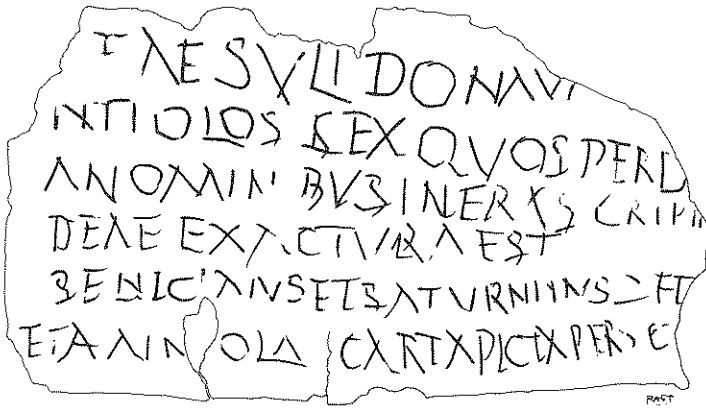 TAE SVLI DONAVI
NTIOLOS SEX QVOS PERD
A NOMINIBVS INFRASCRIPTI
DEAE EXACTVRA EST
SENICIANVS ET SATVRNINVS SED ET
ET ANNIOLA CARTA PICTA PERSC
RSOT